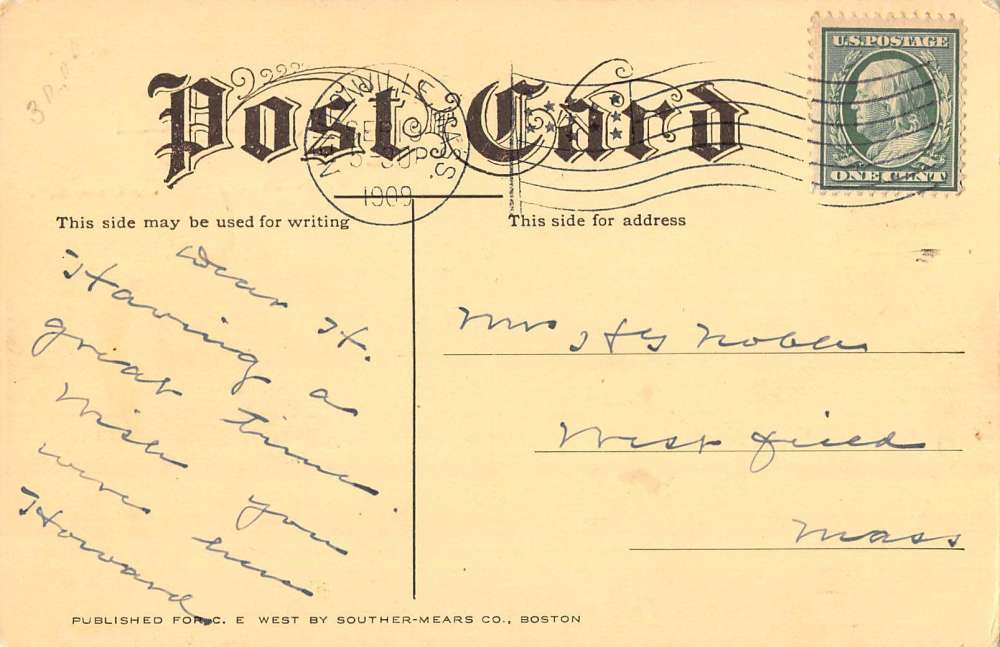 Post Card
U.S. POSTAGE
ONE CENT
SEP
1909
This side may be used for writing
This side for address
Dear H.
Having a
great time
Wish you
were here
Howard
Mrs H G Noble
Westfield
Mass
PUBLISHED FOR C. E WEST BY SOUTHER-MEARS CO., BOSTON